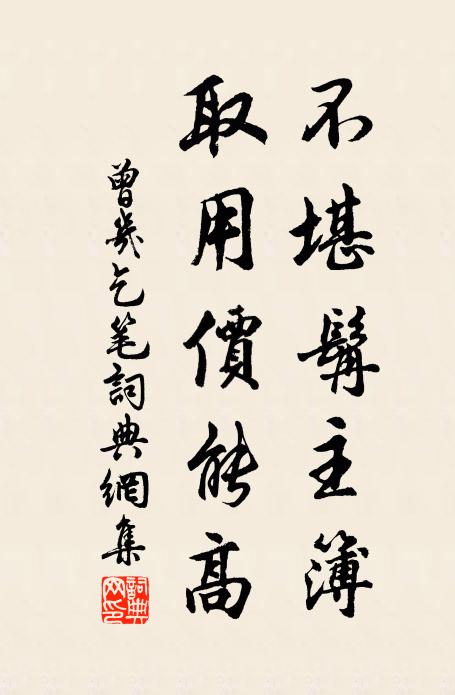 不堪髯主簿
取用價能高
曾幾乞笔詞典網集
詞典网印